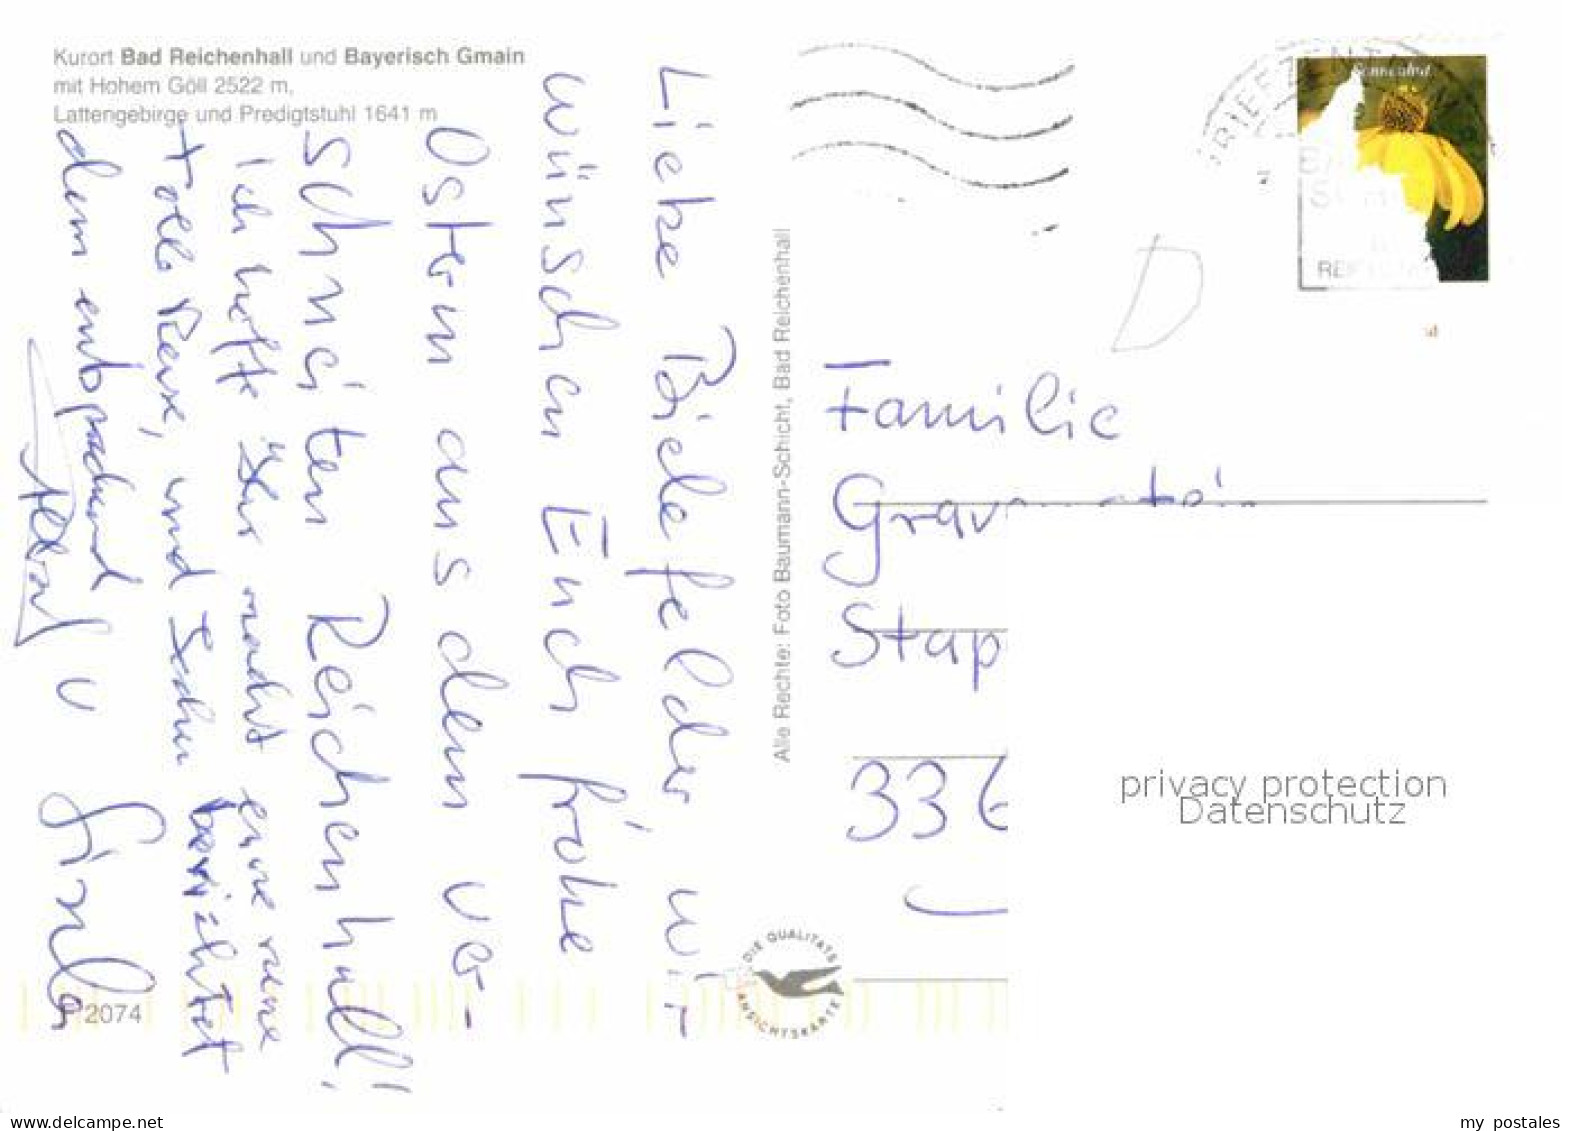 Kurort Bad Reichenhall und Bayerisch Gmain
mit Hohem Göll 2522 m,
Lattengebirge und Predigtstuhl 1641 m
Liebe Bielefelder wir
wünschen Euch frohe
Ostern aus dem ver-
schneiten Reichenhall!
ich hoffe Ihr macht eine
tolle Reise, und
dem
P 2074
Alle Rechte: Foto Baumann-Schicht, Bad Reichenhall
DIE QUALITÄTS
ANSICHTSKARTE
BRIEFZENT
Sonnenhut
D
Familie
Stap
336
privacy protection
Datenschutz
delcampe.net
my_postales